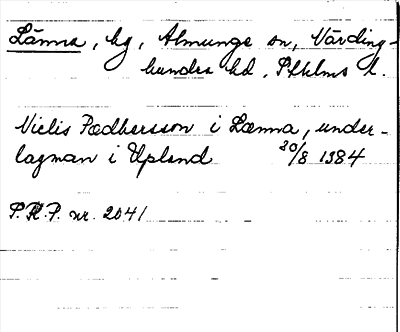 Länna, hg, Almunge sn, Närding-
hundra hd, Sthlms l.
Nielis Pædhersson i Lænna, under-
lagman i Upland 30/8 1384
S.R.P. nr. 2041